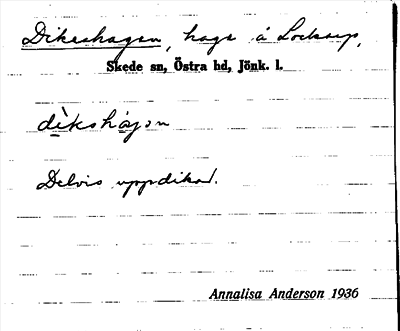 Dikeshagen, hage å Lockarp,
Skede sn, Östra hd, Jönk. l.
dìkshà̱gən
Delvis uppdikad.
Annalisa Anderson 1936